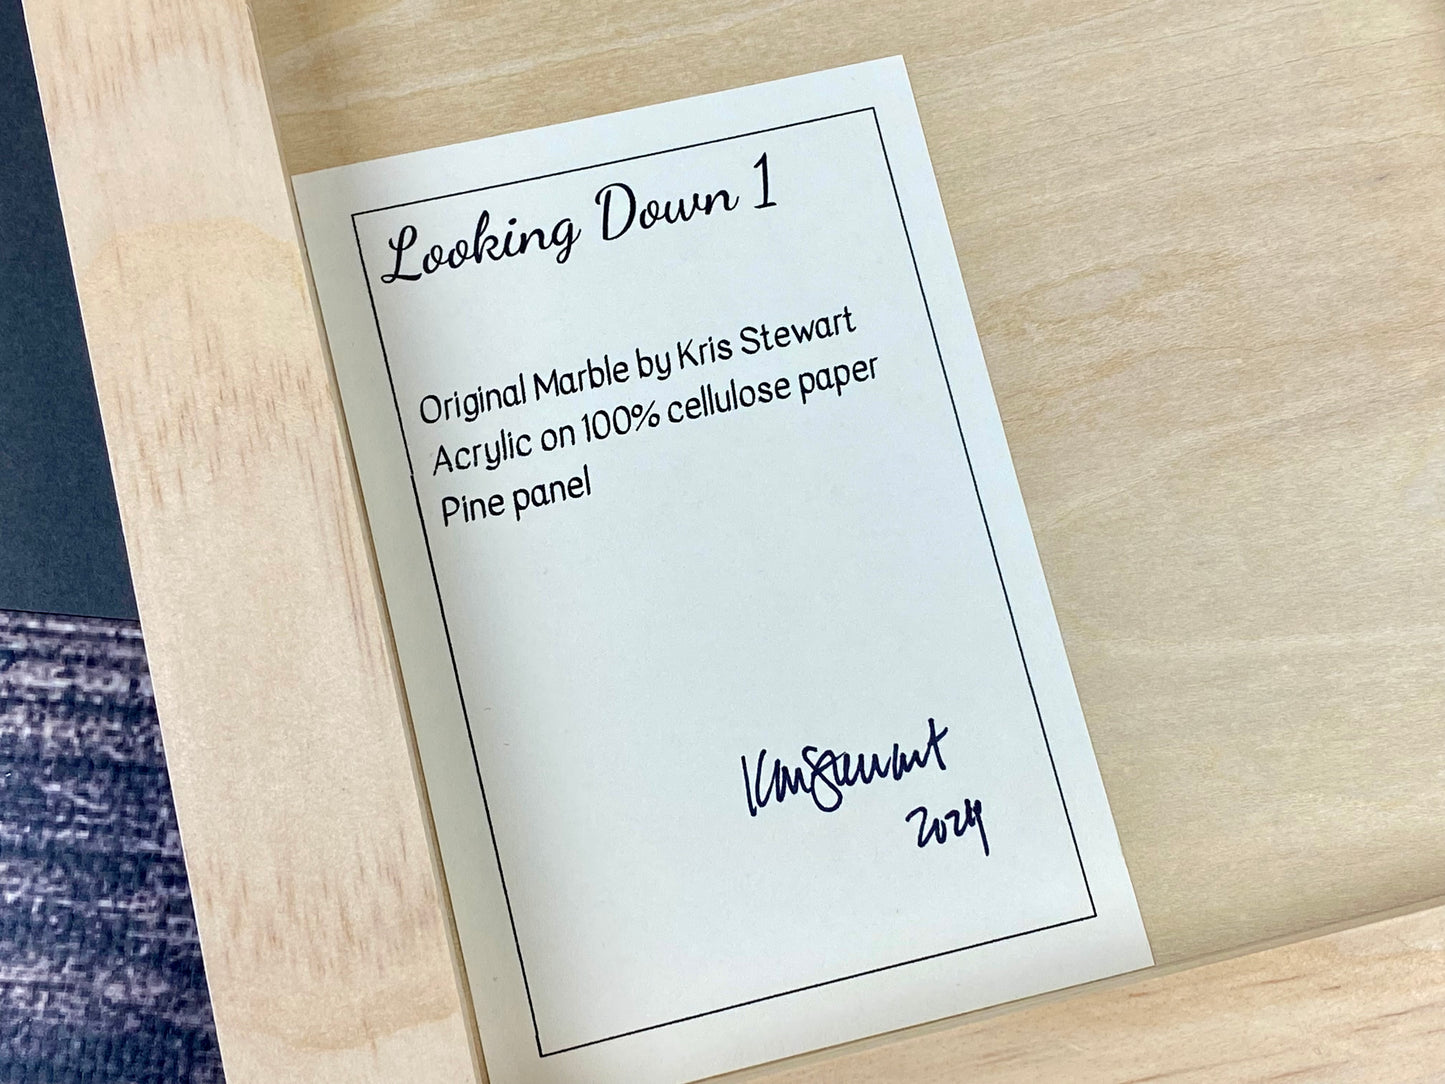 Looking Down 1
Original Marble by Kris Stewart
Acrylic on 100% cellulose paper
Pine panel
Kris Stewart
2024